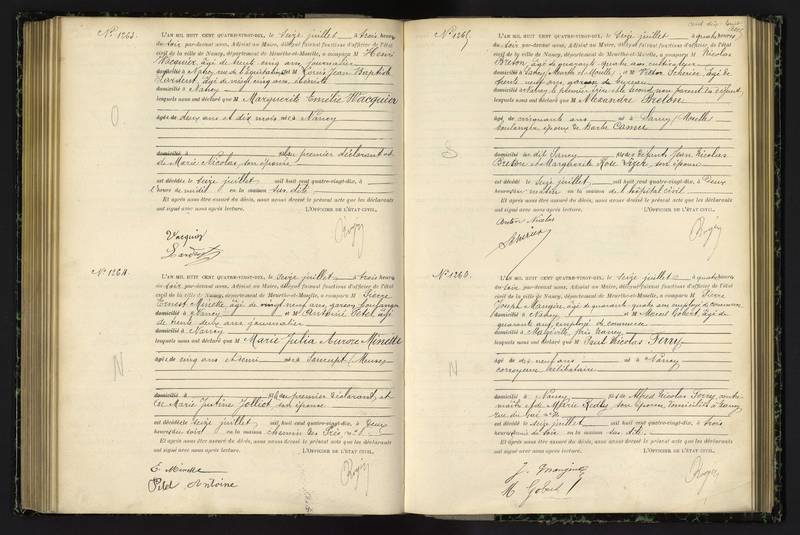 No 1263.
L'AN MIL HUIT CENT QUATRE-VINGT-DIX, le Seize juillet à trois heures
du soir par-devant nous, Adjoint au Maire, délégué faisant fonctions d'officier de l'état
civil de la ville de Nancy, département de Meurthe-et-Moselle, a comparu M Henri
Wacquier, âgé de trente cinq ans, journalier
domicilié à Nancy, rue de l'Équitation et M Louis Jean Baptiste
âgé de vingt cinq ans,
domicilié à Nancy
lesquels nous ont déclaré que M Marguerite Emélie Wacquier
âgée de deux ans et dix mois née à Nancy
domiciliée fille du premier déclarant et
de Marie Nicolas, son épouse
est décédée le seize juillet mil huit cent quatre-vingt-dix, à
l'heure de midi en la maison sus dite
Et après nous être assuré du décès, nous avons dressé le présent acte que les déclarants
ont signé avec nous après lecture. L'OFFICIER DE L'ÉTAT CIVIL,
O
Vacquier
No 1264.
L'AN MIL HUIT CENT QUATRE-VINGT-DIX, le Seize juillet à trois heures
du soir, par-devant nous, Adjoint au Maire, délégué faisant fonctions d'officier de l'état
civil de la ville de Nancy, département de Meurthe-et-Moselle, a comparu M
Ernest Minette âgé de vingt neuf ans, garçon boulanger
domicilié à Nancy et M Antoine Petel âgé
de trente deux ans journalier
domicilié à Nancy
lesquels nous ont déclaré que M Marie Julia Aurore Minette
âgée de cinq ans et demi née à (Meuse)
domiciliée fille du premier déclarant et
de Marie Justine Jolliot son épouse
est décédée le seize juillet mil huit cent quatre-vingt-dix, à deux
heures du soir en la maison chemin des Prés
Et après nous être assuré du décès, nous avons dressé le présent acte que les déclarants
ont signé avec nous après lecture. L'OFFICIER DE L'ÉTAT CIVIL,
N
E. Minette
Antoine
No 1265.
L'AN MIL HUIT CENT QUATRE-VINGT-DIX, le Seize juillet à quatre heures
du soir par-devant nous, Adjoint au Maire, délégué faisant fonctions d'officier de l'état
civil de la ville de Nancy, département de Meurthe-et-Moselle, a comparu M Nicolas
Breton, âgé de quarante quatre ans cultivateur
domicilié à (Meurthe et Moselle) et M Victor Scherier, âgé de
trente neuf ans, garçon de bureau
domicilié à Nancy le premier frère et le second non parent du défunt
lesquels nous ont déclaré que M Alexandre Breton
âgé de cinquante ans né à (Moselle)
boulanger époux de Barbe
domicilié au dit Nancy fils de défunts Jean Nicolas
Breton et Marguerite Rose son épouse
est décédé le Seize juillet mil huit cent quatre-vingt-dix, à deux
heures du matin en la maison de l'hôpital civil
Et après nous être assuré du décès, nous avons dressé le présent acte que les déclarants
ont signé avec nous après lecture. L'OFFICIER DE L'ÉTAT CIVIL,
S
Nicolas
Scherier
No 1266.
L'AN MIL HUIT CENT QUATRE-VINGT-DIX, le Seize juillet à quatre heures
du soir, par-devant nous, Adjoint au Maire, délégué faisant fonctions d'officier de l'état
civil de la ville de Nancy, département de Meurthe-et-Moselle, a comparu M Pierre
Joseph Mangin, âgé de quarante quatre ans employé de commerce
domicilié à Nancy et M Marcel Gobert, âgé de
quarante ans, employé de commerce
domicilié à Maxéville, près Nancy
lesquels nous ont déclaré que M Paul Nicolas Ferry
âgé de dix neuf ans né à Nancy
corroyeur célibataire
domicilié à Nancy fils de Alfred Nicolas Ferry
et de Marie son épouse, domiciliés à Nancy
est décédé le seize juillet mil huit cent quatre-vingt-dix, à trois
heures du soir en la maison sus dite
Et après nous être assuré du décès, nous avons dressé le présent acte que les déclarants
ont signé avec nous après lecture. L'OFFICIER DE L'ÉTAT CIVIL,
N
J. Mangin
M Gobert